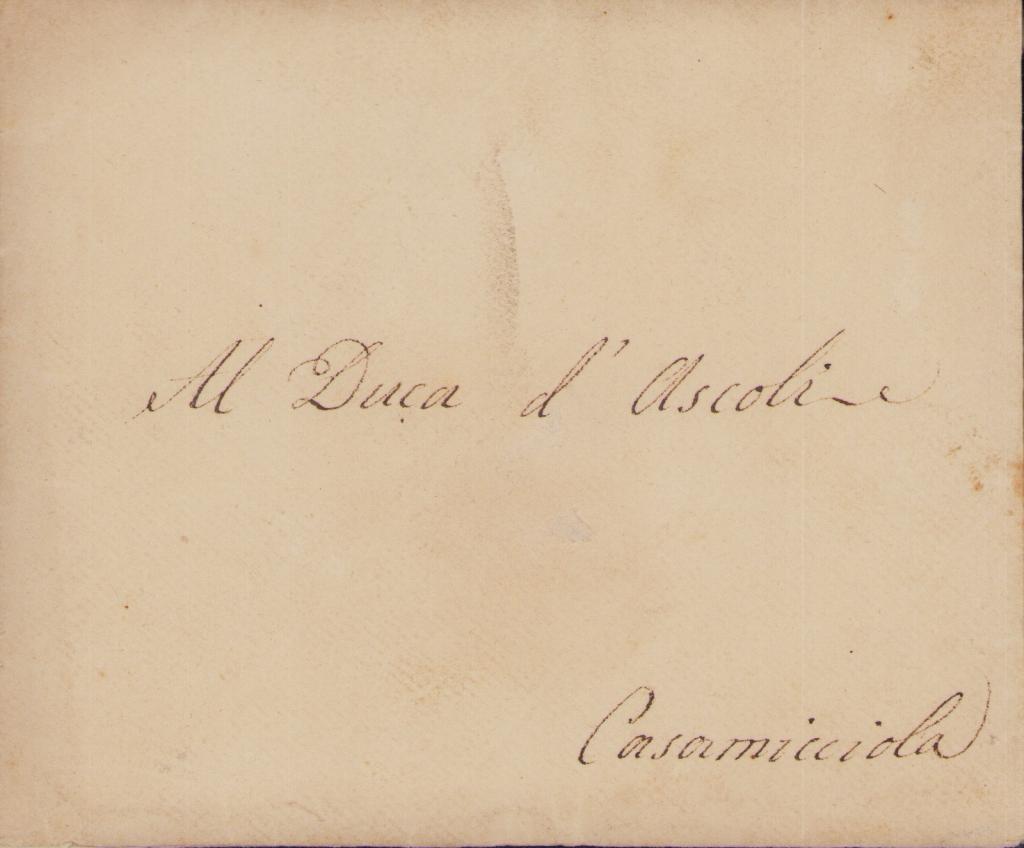 Al Duca d' Ascoli
Casamicciola